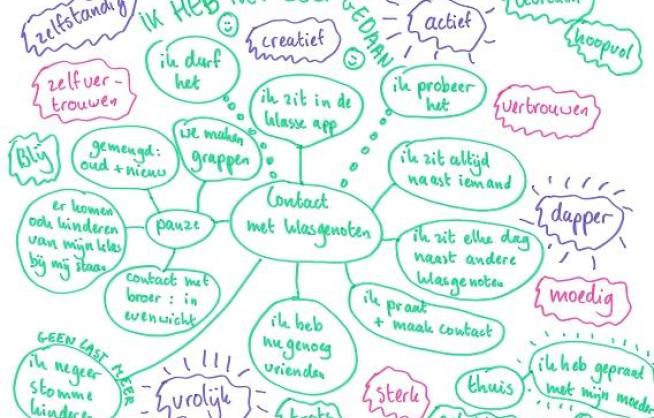 zelfstandig
ik HEB
GEDAAN
creatief
actief
hoopvol
ik durf
het
zelfver-
trouwen
ik zit in de
klasse app
ik probeer
het
vertrouwen
Blij
gemengd:
oud + nieuw
we maken
grappen
ik zit altijd
naast iemand
er komen
ook kinderen
van mijn klas
bij mij staan
pauze
Contact
met klasgenoten
dapper
ik zit elke dag
naast andere
klasgenoten
contact met
broer: in
evenwicht
moedig
ik praat
+ maak contact
ik heb
nu genoeg
vrienden
GEEN LAST MEER
ik negeer
stomme
kinderen
vrolijk
sterk
thuis
ik heb gepraat
met mijn moeder
trots